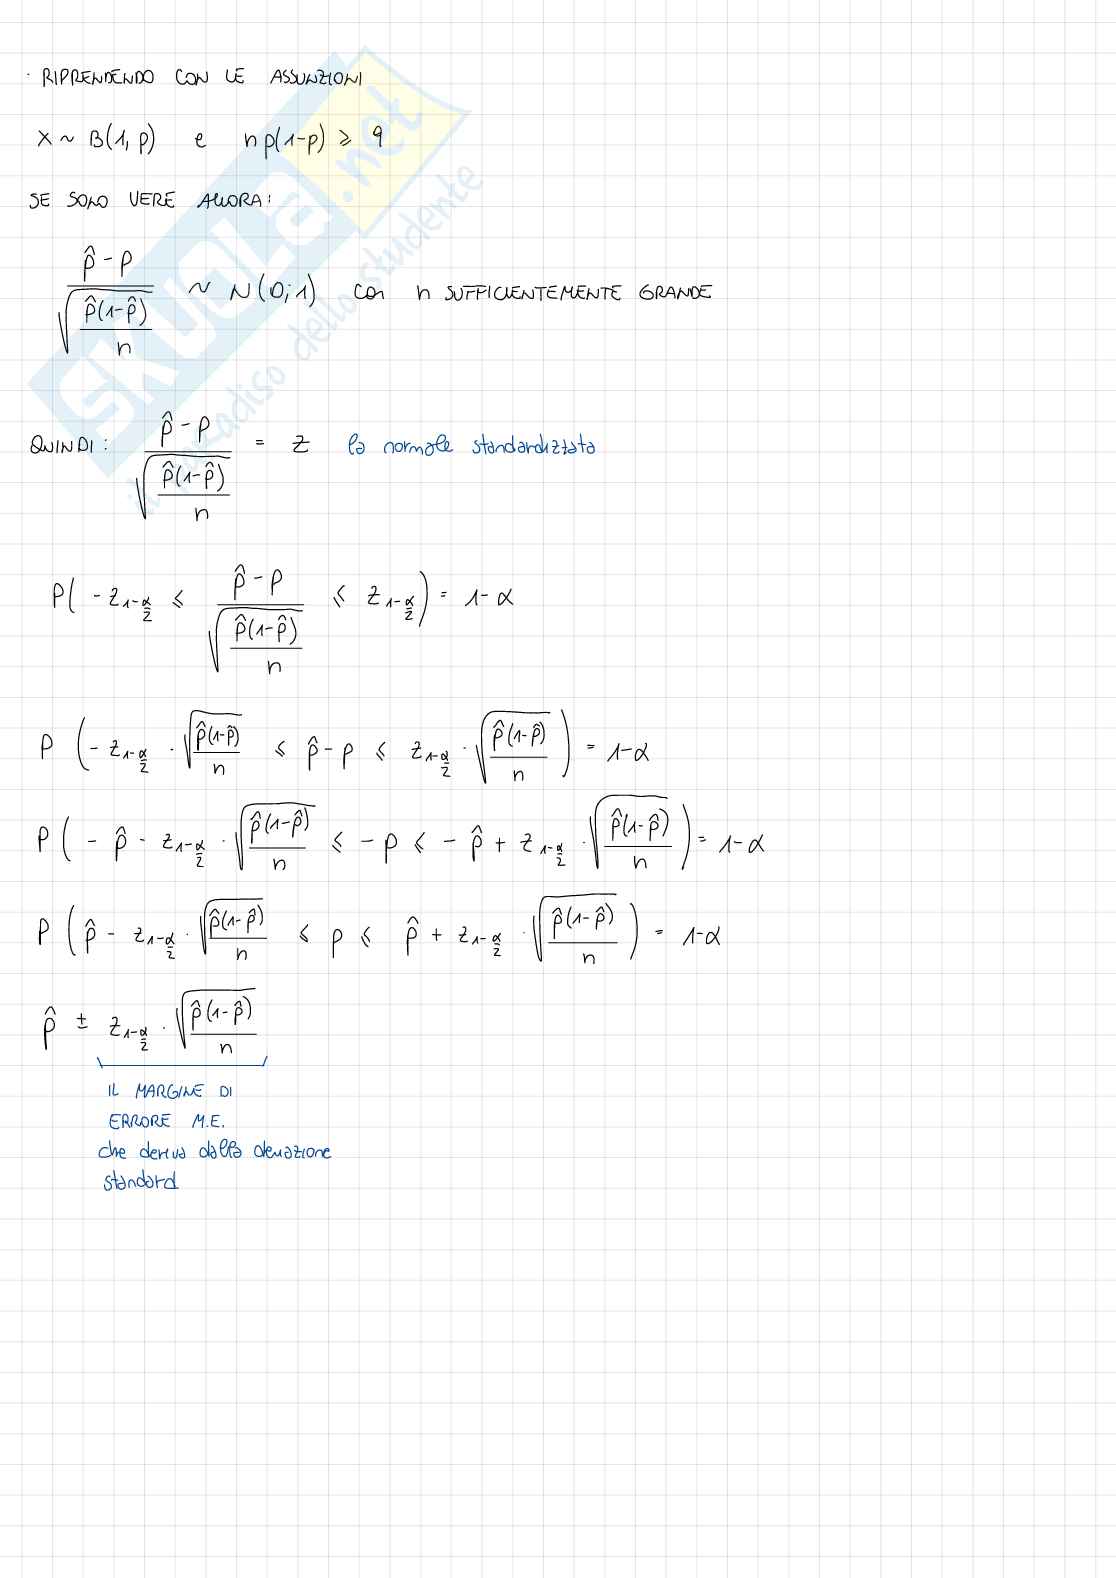 · RIPRENDENDO CON LE ASSUNZIONI
X ~ B(1, p) e n p(1-p) ⩾ 9
SE SONO VERE ALLORA:
(p̂ - p) / √(p̂(1-p̂)/n) ~ N(0;1) con n SUFFICIENTEMENTE GRANDE
QUINDI: (p̂ - p) / √(p̂(1-p̂)/n) = z la normale standardizzata
P( - z_{1-α/2} ⩽ (p̂ - p) / √(p̂(1-p̂)/n) ⩽ z_{1-α/2} ) = 1-α
P ( - z_{1-α/2} · √(p̂(1-p̂)/n) ⩽ p̂ - p ⩽ z_{1-α/2} · √(p̂(1-p̂)/n) ) = 1-α
P ( - p̂ - z_{1-α/2} · √(p̂(1-p̂)/n) ⩽ - p ⩽ - p̂ + z_{1-α/2} · √(p̂(1-p̂)/n) ) = 1-α
P ( p̂ - z_{1-α/2} · √(p̂(1-p̂)/n) ⩽ p ⩽ p̂ + z_{1-α/2} · √(p̂(1-p̂)/n) ) = 1-α
p̂ ± z_{1-α/2} · √(p̂(1-p̂)/n)
IL MARGINE DI
ERRORE M.E.
che deriva dalla deviazione
standard
SKUOLA.net
il paradiso dello studente